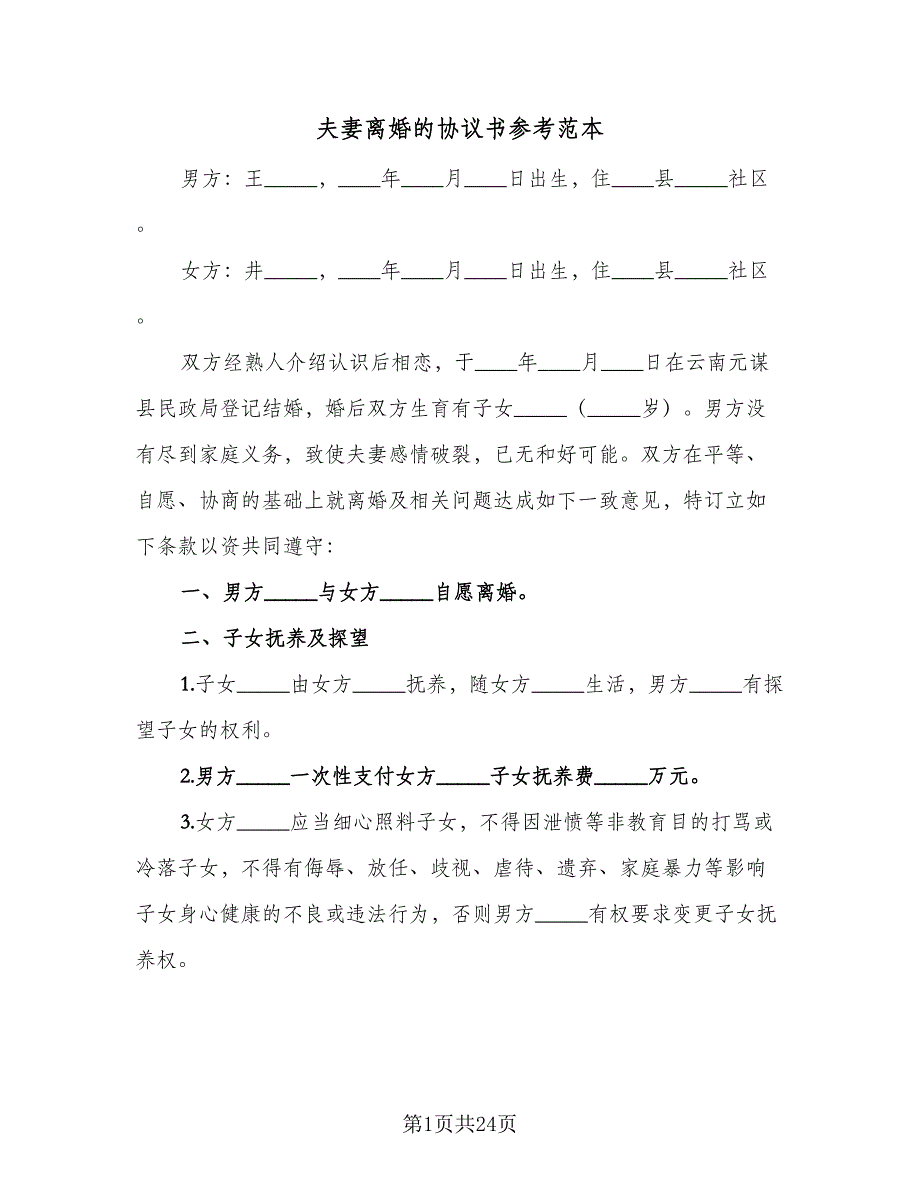 夫妻离婚的协议书参考范本
男方：王_____，____年____月____日出生，住____县_____社区
。
女方：井_____，____年____月____日出生，住____县_____社区
。
双方经熟人介绍认识后相恋，于____年____月____日在云南元谋
县民政局登记结婚，婚后双方生育有子女_____（_____岁）。男方没
有尽到家庭义务，致使夫妻感情破裂，已无和好可能。双方在平等、
自愿、协商的基础上就离婚及相关问题达成如下一致意见，特订立如
下条款以资共同遵守：
一、男方_____与女方_____自愿离婚。
二、子女抚养及探望
1.子女_____由女方_____抚养，随女方_____生活，男方_____有探
望子女的权利。
2.男方_____一次性支付女方_____子女抚养费_____万元。
3.女方_____应当细心照料子女，不得因泄愤等非教育目的打骂或
冷落子女，不得有侮辱、放任、歧视、虐待、遗弃、家庭暴力等影响
子女身心健康的不良或违法行为，否则男方_____有权要求变更子女抚
养权。
第1页共24页